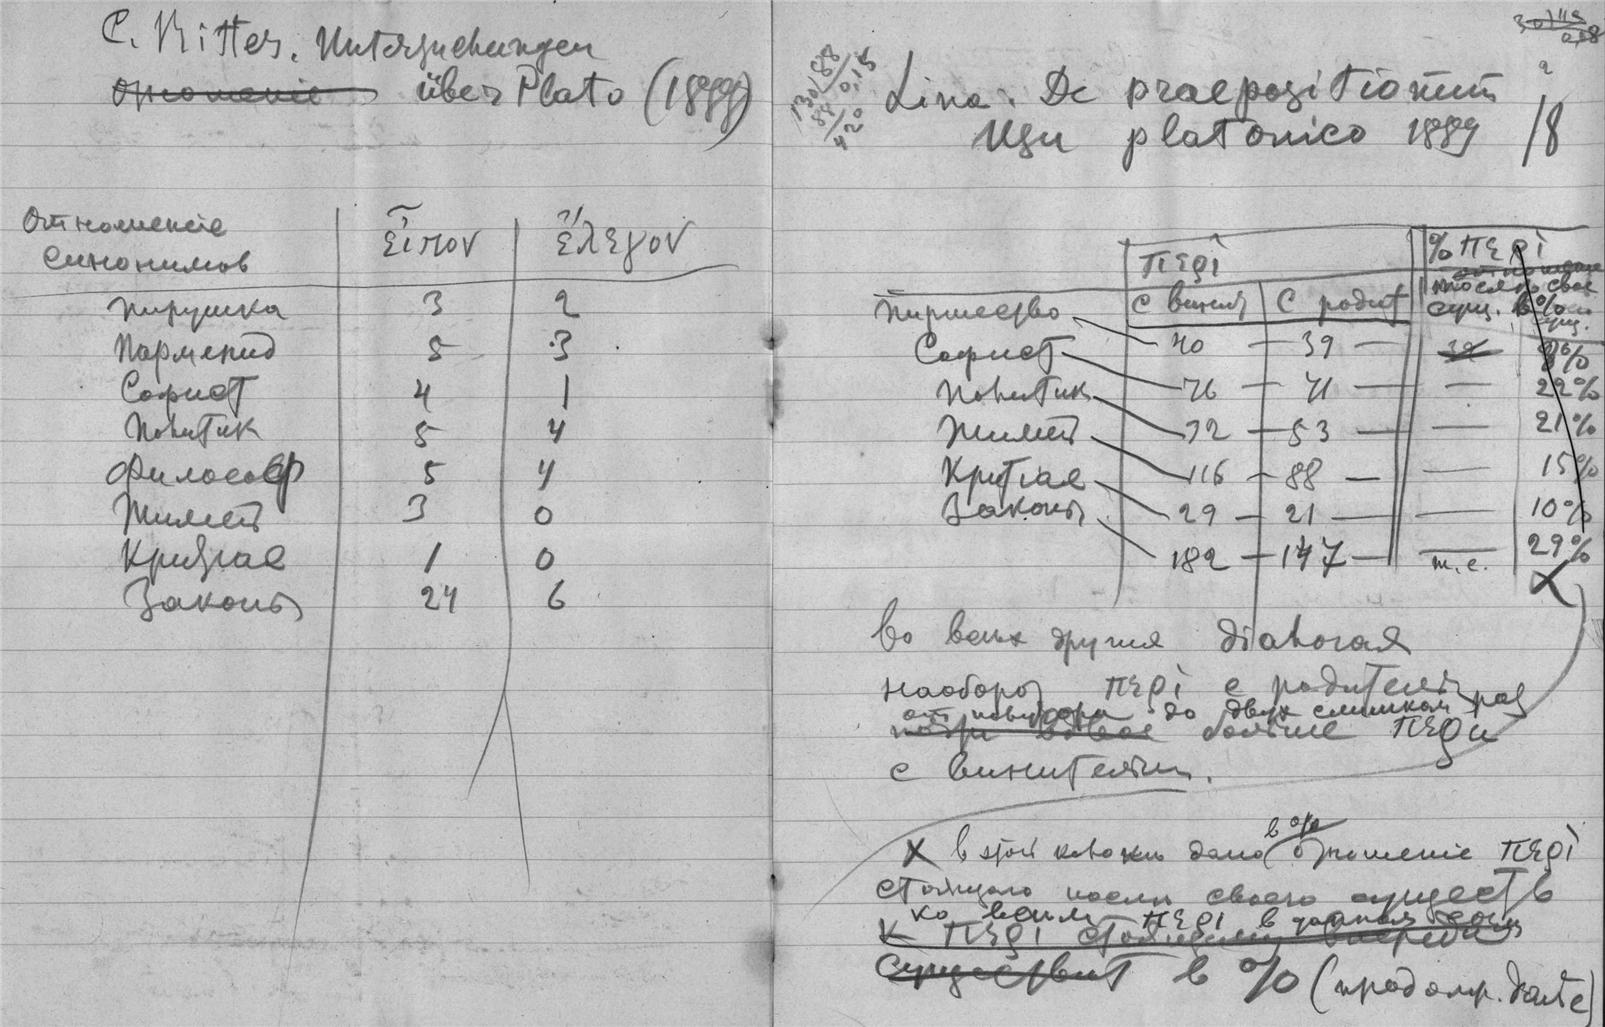 C. Ritter. Untersuchungen
über Plato (1888)
Отношение
синонимов
εἶπον
ἔλεγον
Пирушка 3 2
Парменид 5 3
Софист 4 1
Политик 5 4
Философ 5 4
Тимей 3 0
Критiас 1 0
Законы 24 6
30 115
130 88 0,15
88
420
Lina. De praepositionum
usu platonico 1889 /8
περὶ
% περὶ
с винит с родит
после свое
сущ. в %
Пиршество 40 — 39 — 8%
Софист 76 — 71 — 22%
Политик 72 — 53 — 21%
Тимей 116 — 88 — 15%
Критiас 29 — 21 — 10%
Законы 182 — 147 — т.е. 29%
X
Во всех других дiалогах
наоборот περὶ с родителн
от полутора до двух слишком раз
больше περι
с винителн.
X в этой колонке дано в % отношенiе περὶ
стоящаго после своего существ
ко всем περὶ в данном
к περὶ стоящему впереди
существит в % (продолж. далее)